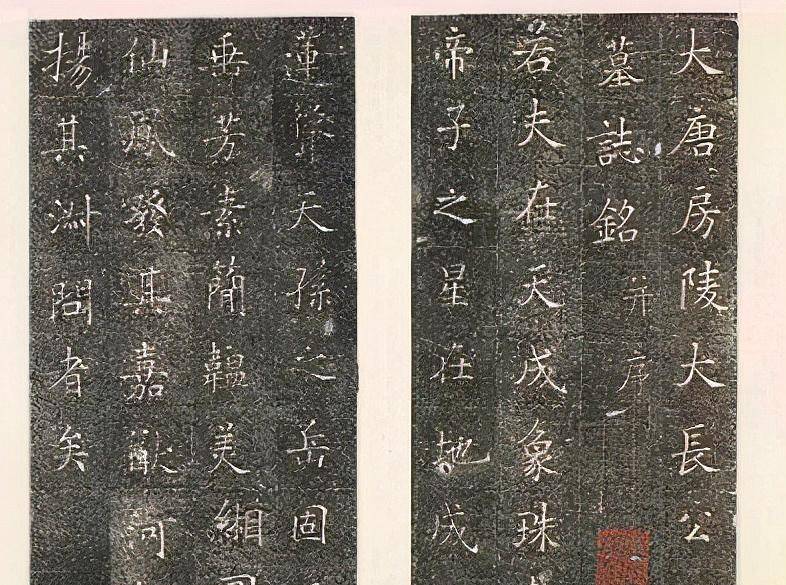 大唐房陵大長公
墓誌銘并序
若夫在天成象珠
帝子之星在地成
蓮聳天孫之岳固
垂芳素簡韞美緗
仙風發其嘉猷河
揚其淋問者矣